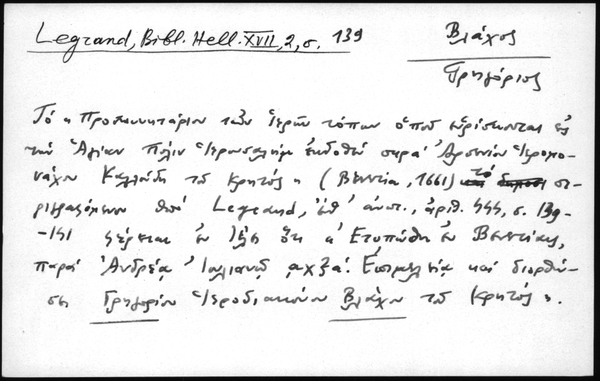 Legrand, Bibl. Hell. XVII, 2, σ. 139
Βλάχος
Γρηγόριος
Τό « Προσκυνητάριον τῶν Ἱερῶν τόπων ὁποῦ εὑρίσκονται εἰς
τήν Ἁγίαν Πόλιν Ἱερουσαλήμ ἐκδοθέν παρά Ἀρσενίου Ἱερομο-
νάχου Καλλούδη τοῦ Κρητός » (Βενετία, 1661) τό πε-
ριγραφόμενον ὑπό Legrand, ἔνθ' ἀνωτ., ἀριθ. 444, σ. 139-
-141 φέρεται ἐν τέλει ὅτι « Ἐτυπώθη ἐν Βενετίαις,
παρά Ἀνδρέᾳ Ἰουλιανῷ ͵αχξα΄. Ἐπιμελείᾳ καί διορθώ-
σει Γρηγορίου Ἱεροδιακόνου Βλάχου τοῦ Κρητός ».